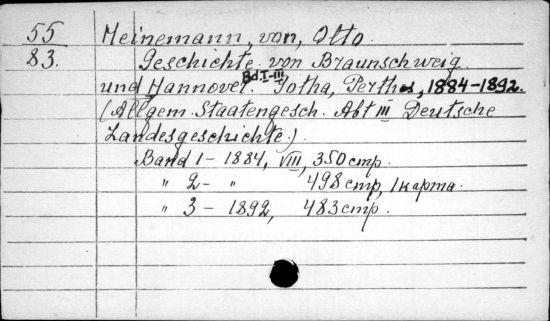 55 Heinemann, von, Otto.
83. Geschichte von Braunschweig
und Hannover. Bd. I-III. Gotha, Perthes, 1884-1892.
(Allgem. Staatengesch. Abt III Deutsche
Landesgeschichte).
Band 1 - 1884, VIII, 350 стр.
" 2 - " 498 стр, 1 карта.
" 3 - 1892, 483 стр.